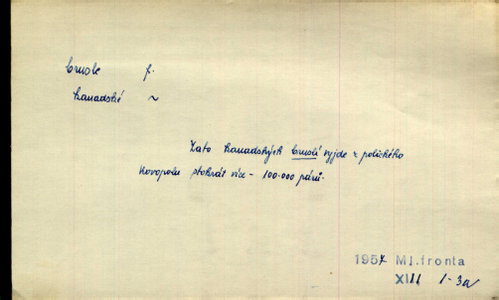 brusle f.
kanadské ~
Zato kanadských bruslí vyjde z polického
Kovopolu stokrát více - 100.000 párů.
1957 Ml.fronta
XIII 1-3a